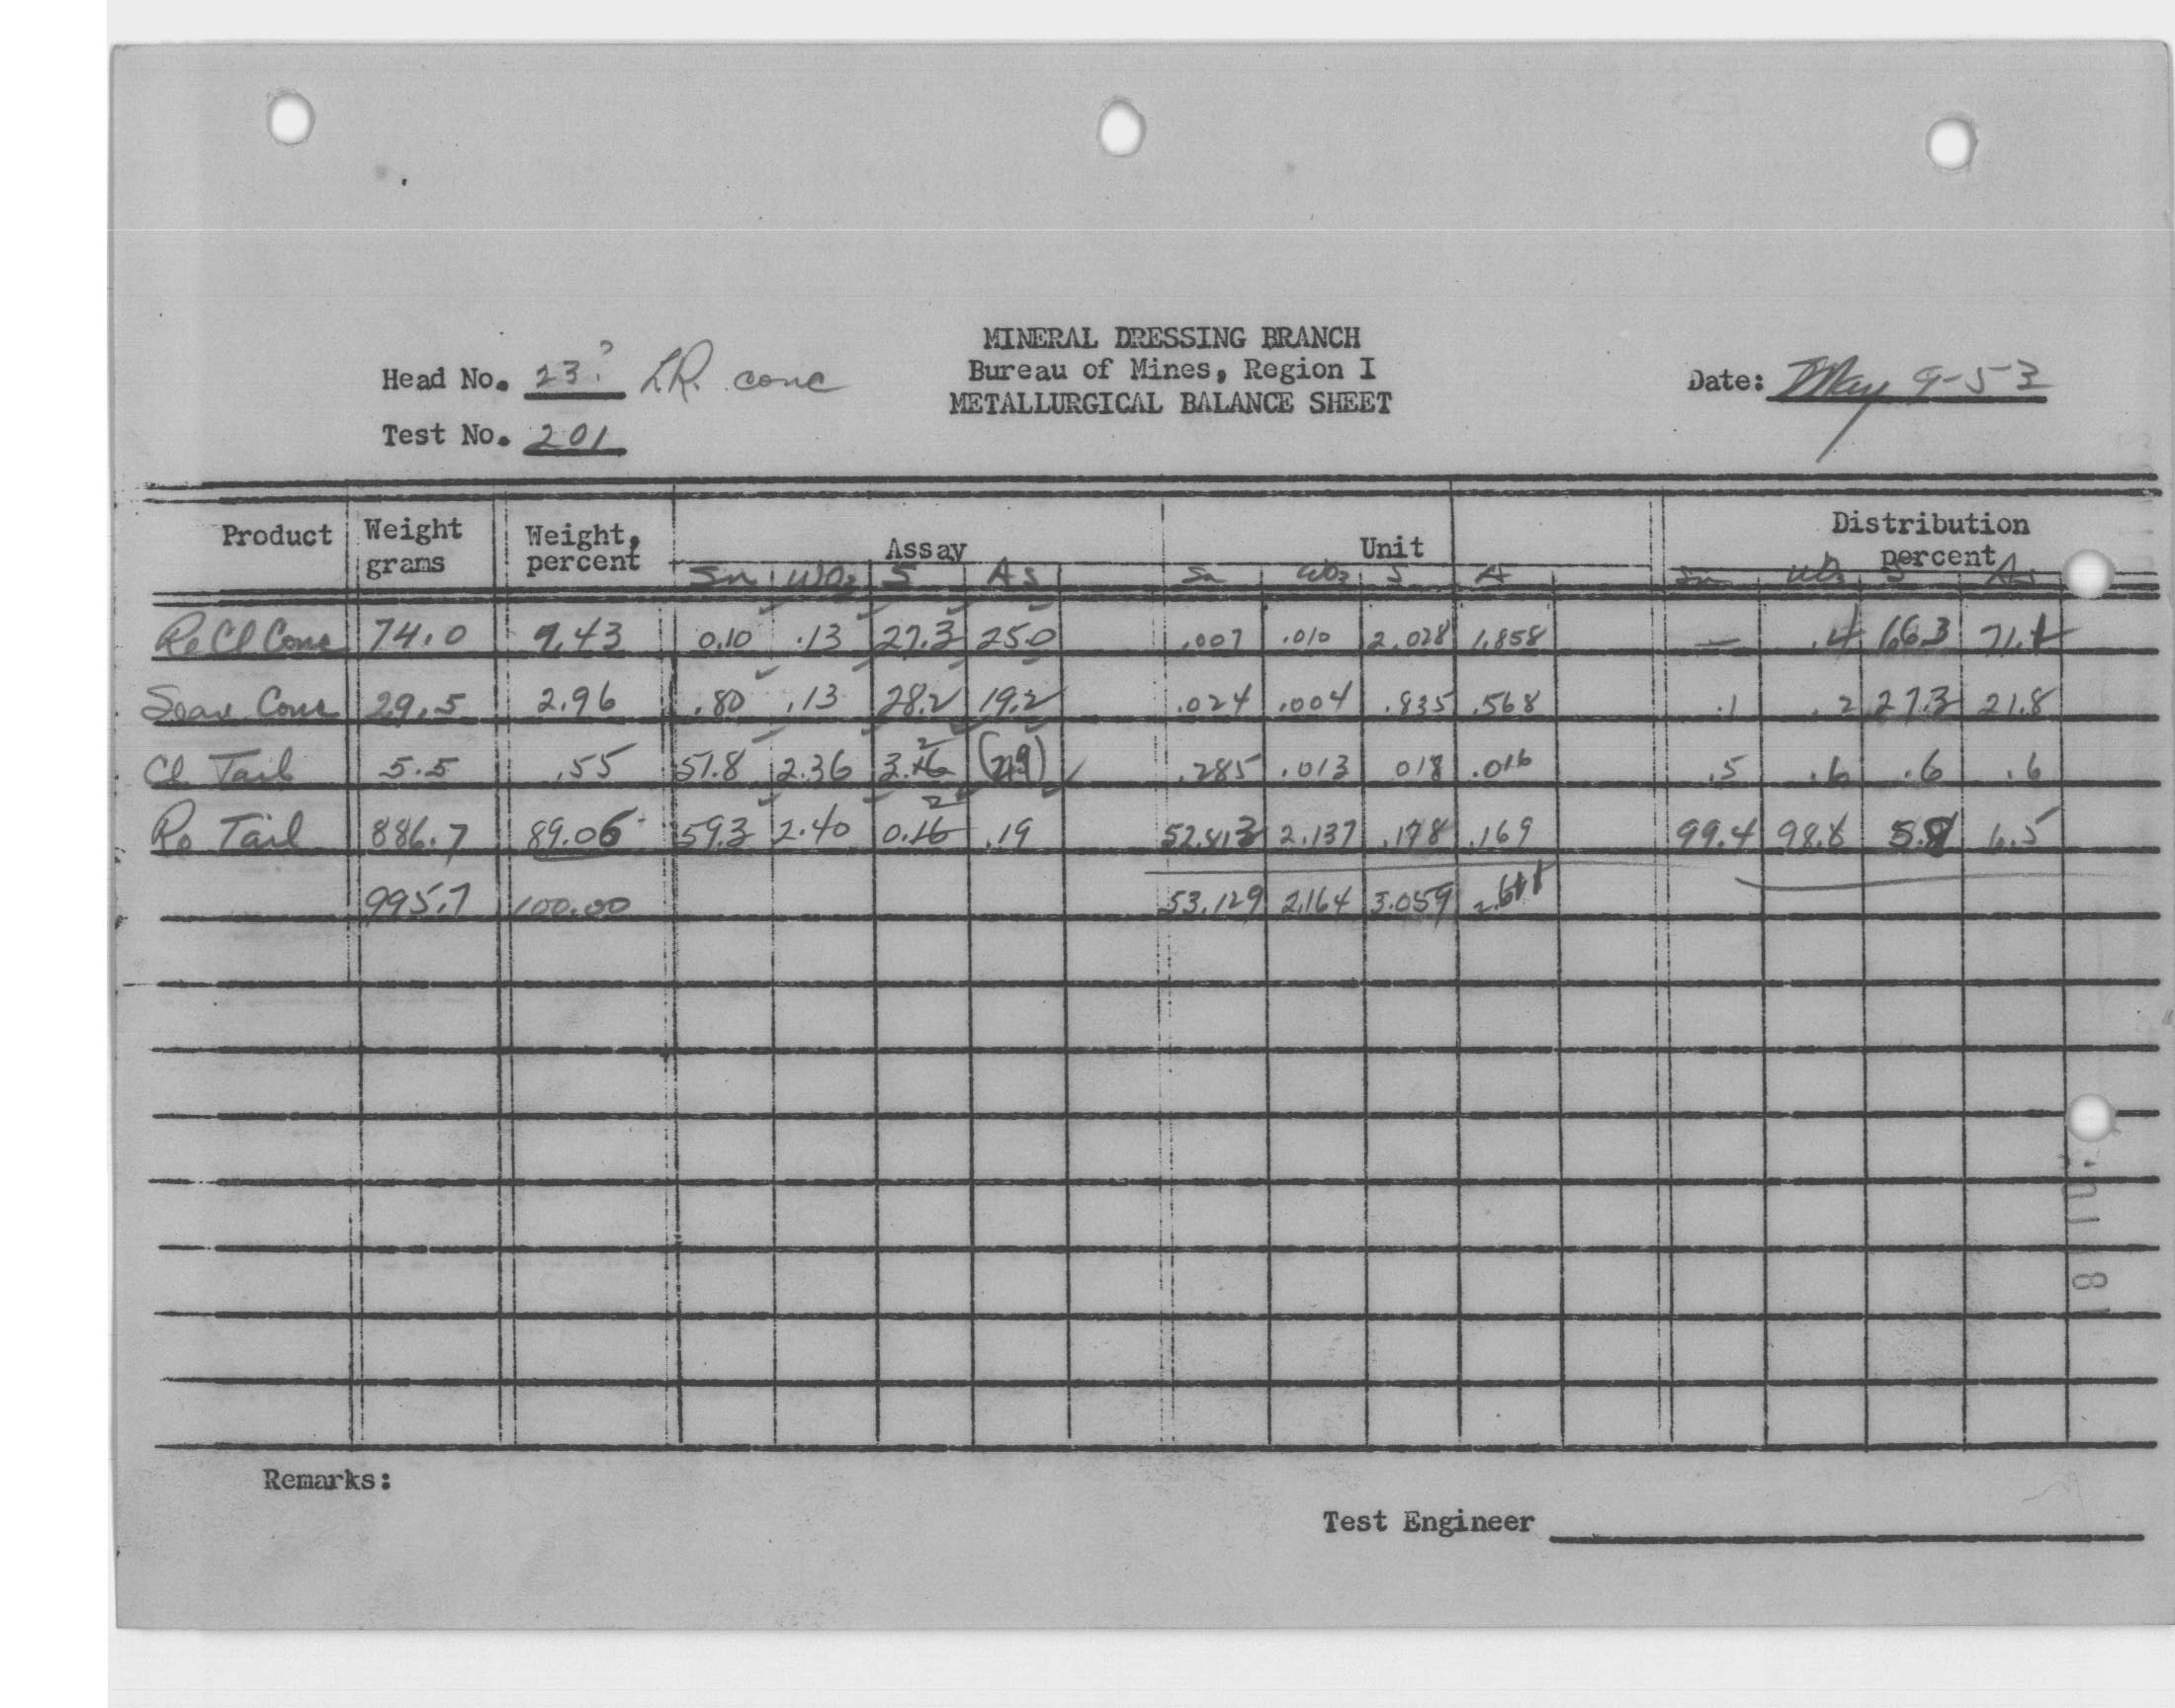 MINERAL DRESSING BRANCH
Head No. 23? LR. conc Bureau of Mines, Region I Date: May 9-53
METALLURGICAL BALANCE SHEET
Test No. 201
Product Weight grams Weight, percent Assay Unit Distribution percent
Sn WO3 S As Sn WO3 S A Sn WO3 S As
ReCl Conc 74.0 7.43 0.10 .13 27.3 25.0 .007 .010 2.028 1.858 — .4 66.3 71.1
Scav Conc 29.5 2.96 .80 .13 28.2 19.2 .024 .004 .835 .568 .1 .2 27.3 21.8
Cl Tail 5.5 .55 51.8 2.36 3.26 (2.9) .285 .013 .018 .016 .5 .6 .6 .6
Ro Tail 886.7 89.06 59.3 2.40 0.26 .19 52.813 2.137 .178 .169 99.4 98.8 5.8 6.5
995.7 100.00 53.129 2.164 3.059 2.611
Remarks:
Test Engineer